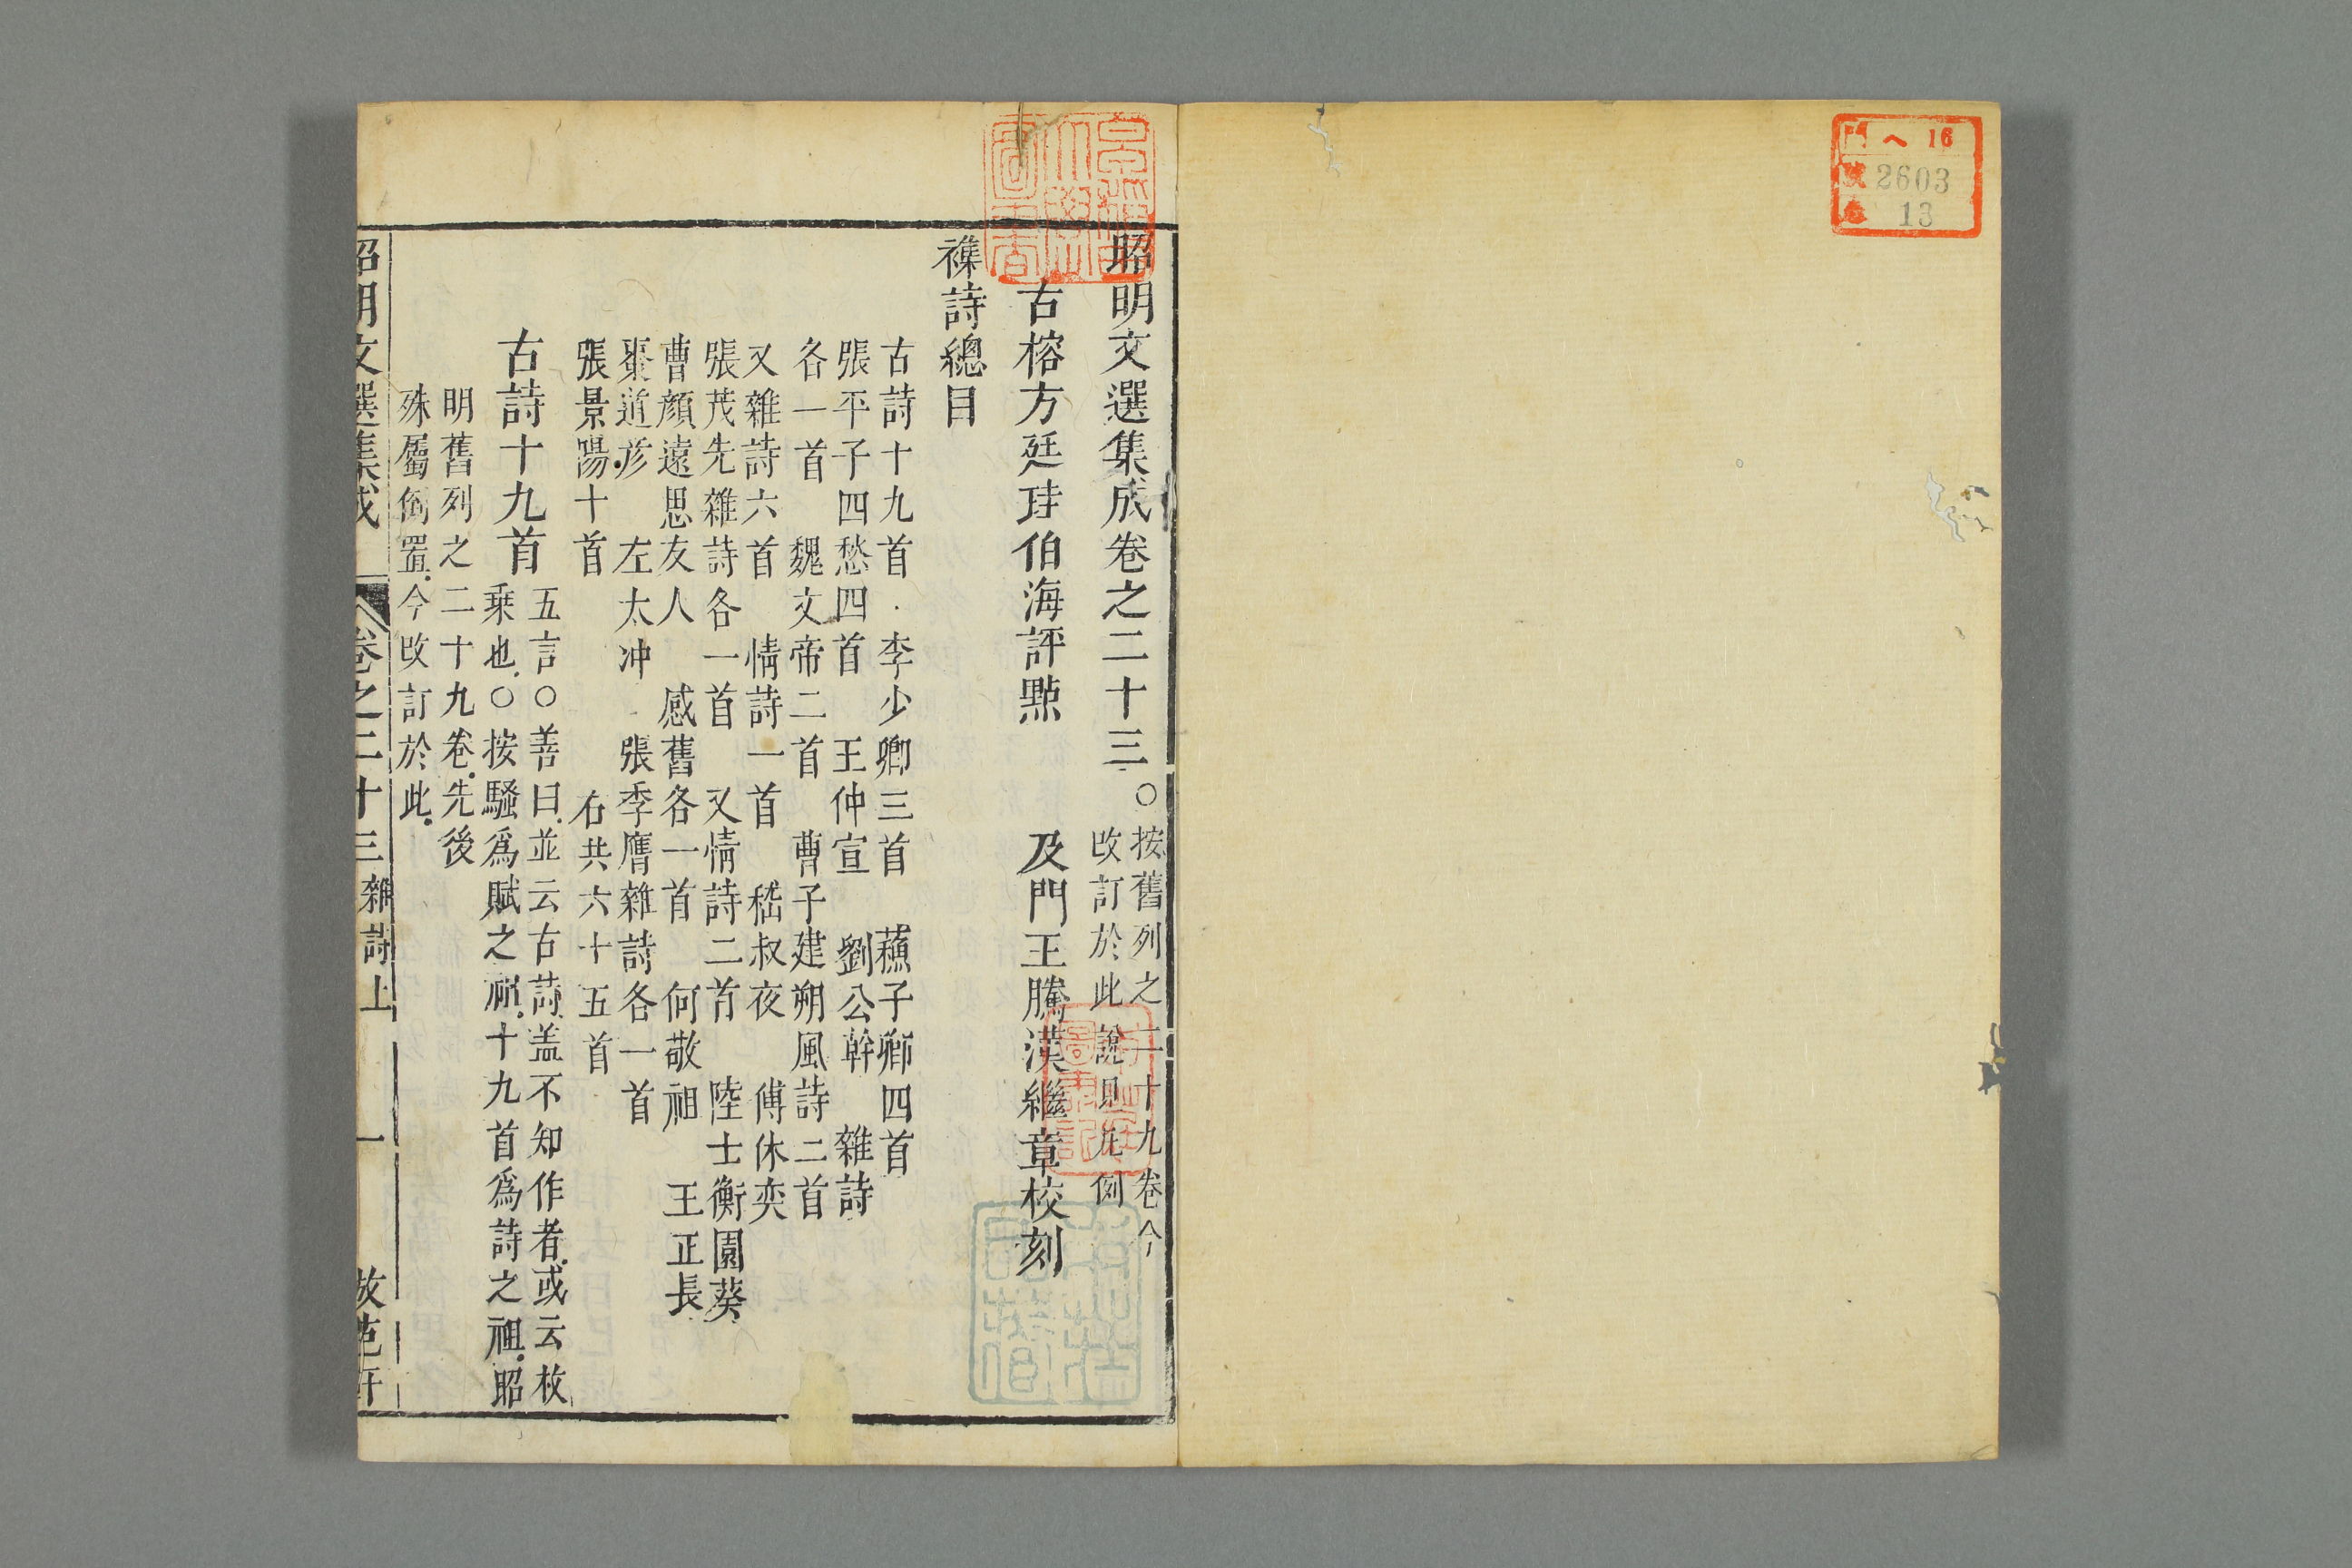 門 ヘ 16
號 2603
卷 13
昭明文選集成卷之二十三
○按舊列之二十九卷今
改訂於此說見凡例
古榕方廷珪伯海評點 及門王騰漢繼章校刻
襍詩總目
古詩十九首 李少卿三首 蘇子卿四首
張平子四愁四首 王仲宣 劉公幹 雜詩
各一首 魏文帝二首 曹子建朔風詩二首
又雜詩六首 情詩一首 嵇叔夜 傅休奕
張茂先雜詩各一首 又情詩二首 陸士衡園葵
曹顏遠思友人 感舊各一首 何敬祖 王正長
棗道彦 左太冲 張季膺雜詩各一首
張景陽十首 右共六十五首
古詩十九首
五言○善曰並云古詩盖不知作者或云枚
乗也○按騷爲賦之祖十九首爲詩之祖昭
明舊列之二十九卷先後
殊屬倒置今改訂於此
昭明文選集成 卷之二十三 雜詩上 一 倣范軒